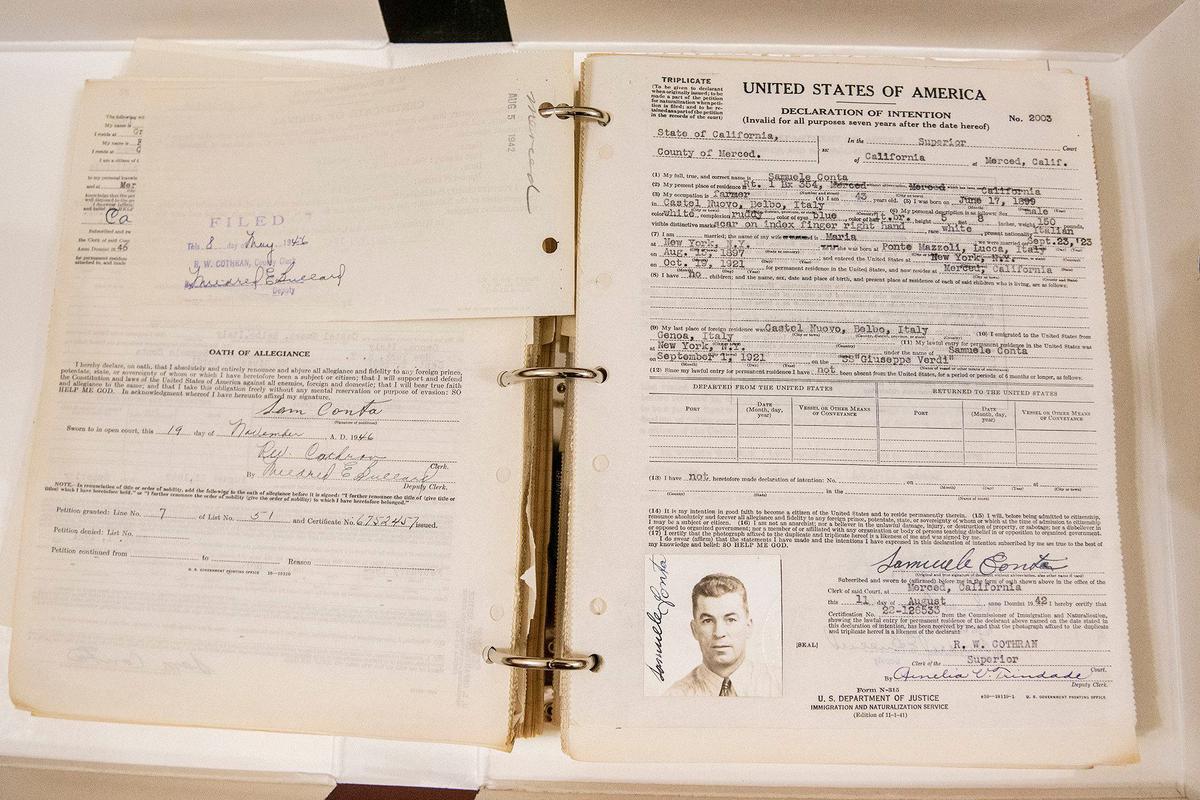 The following wit
My name is
I reside at
My name is
I reside at
I am a citizen of t
and at Mer
Ca
Subscribed and sw
the Clerk of said Cou
Anno Domini 19 45
AUG 5 1942
Merced
FILED
This 8 day of May, 1946
R. W. COTHRAN, County Clerk
By Mildred E Bullard
Deputy
OATH OF ALLEGIANCE
I hereby declare, on oath, that I absolutely and entirely renounce and abjure all allegiance and fidelity to any foreign prince,
potentate, state, or sovereignty of whom or which I have heretofore been a subject or citizen; that I will support and defend
the Constitution and laws of the United States of America against all enemies, foreign and domestic; that I will bear true faith
and allegiance to the same; and that I take this obligation freely without any mental reservation or purpose of evasion: SO
HELP ME GOD. In acknowledgment whereof I have hereunto affixed my signature.
Sam Conta
(Signature of petitioner)
Sworn to in open court, this 19 day of November, A. D. 1946
R.W. Cothran
Clerk.
By Mildred E Bullard
Deputy Clerk.
NOTE.—In renunciation of title or order of nobility, add the following to the oath of allegiance before it is signed: "I further renounce the title of (give title or
titles) which I have heretofore held," or "I further renounce the order of nobility (give the order of nobility) to which I have heretofore belonged."
Petition granted: Line No. 7 of List No. 51 and Certificate No. 6752457 issued.
Petition denied: List No.
Petition continued from to Reason
U. S. GOVERNMENT PRINTING OFFICE
TRIPLICATE
(To be given to declarant
when originally issued; to be
made a part of the petition
for naturalization when peti-
tion is filed; and to be re-
tained as a part of the petition
in the records of the court)
UNITED STATES OF AMERICA
DECLARATION OF INTENTION
(Invalid for all purposes seven years after the date hereof)
No. 2003
State of California,
County of Merced.
ss:
In the Superior Court
of California at Merced, Calif.
(1) My full, true, and correct name is Samuele Conta
(2) My present place of residence is Rt. 1 Bx 354, Merced Merced California
(3) My occupation is farmer (4) I am 43 years old. (5) I was born on June 17, 1899
in Castel Nuovo, Belbo, Italy (6) My personal description is as follows: Sex male
color white, complexion ruddy, color of eyes blue, color of hair lt.br. height 5 feet 8 inches, weight 150
visible distinctive marks scar on index finger right hand race white present nationality Italian
(7) I am married; the name of my wife is Maria we were married on Sept.23,'23
at New York, N.Y. she was born at Ponte Mazzoli, Lucca, Italy
on Aug. 15, 1897 and entered the United States at New York, N.Y.
on Oct. 19, 1921 for permanent residence in the United States, and now resides at Merced, California
(8) I have no children; and the name, sex, date and place of birth, and present place of residence of each of said children who is living, are as follows:
(9) My last place of foreign residence was Castel Nuovo, Belbo, Italy (10) I emigrated to the United States from
Genoa, Italy (11) My lawful entry for permanent residence in the United States was
at New York, N.Y. under the name of Samuele Conta
on September 1, 1921 on the SS"Giuseppe Verdi"
(12) Since my lawful entry for permanent residence I have not been absent from the United States, for a period or periods of 6 months or longer, as follows:
DEPARTED FROM THE UNITED STATES
RETURNED TO THE UNITED STATES
PORT
DATE (Month, day, year)
VESSEL OR OTHER MEANS OF CONVEYANCE
PORT
DATE (Month, day, year)
VESSEL OR OTHER MEANS OF CONVEYANCE
(13) I have not heretofore made declaration of intention: No. on at
in the
(14) It is my intention in good faith to become a citizen of the United States and to reside permanently therein. (15) I will, before being admitted to citizenship,
renounce absolutely and forever all allegiance and fidelity to any foreign prince, potentate, state, or sovereignty of whom or which at the time of admission to citizenship
I may be a subject or citizen. (16) I am not an anarchist; nor a believer in the unlawful damage, injury, or destruction of property, or sabotage; nor a disbeliever in
or opposed to organized government; nor a member of or affiliated with any organization or body of persons teaching disbelief in or opposition to organized government.
(17) I certify that the photograph affixed to the duplicate and triplicate hereof is a likeness of me and was signed by me.
I do swear (affirm) that the statements I have made and the intentions I have expressed in this declaration of intention subscribed by me are true to the best of
my knowledge and belief: SO HELP ME GOD.
Samuele Conta
Samuele Conta
Subscribed and sworn to (affirmed) before me in the form of oath shown above in the office of the
Clerk of said Court, at Merced, California
this 11 day of August anno Domini 19 42 I hereby certify that
Certification No. 22-126533 from the Commissioner of Immigration and Naturalization,
showing the lawful entry for permanent residence of the declarant above named on the date stated in
this declaration of intention, has been received by me, and that the photograph affixed to the duplicate
and triplicate hereof is a likeness of the declarant
[SEAL]
R. W. COTHRAN
Clerk of the Superior Court.
By Amelia V. Trindade
Deputy Clerk.
Form N-315
U. S. DEPARTMENT OF JUSTICE
IMMIGRATION AND NATURALIZATION SERVICE
(Edition of 11-1-41)
U. S. GOVERNMENT PRINTING OFFICE